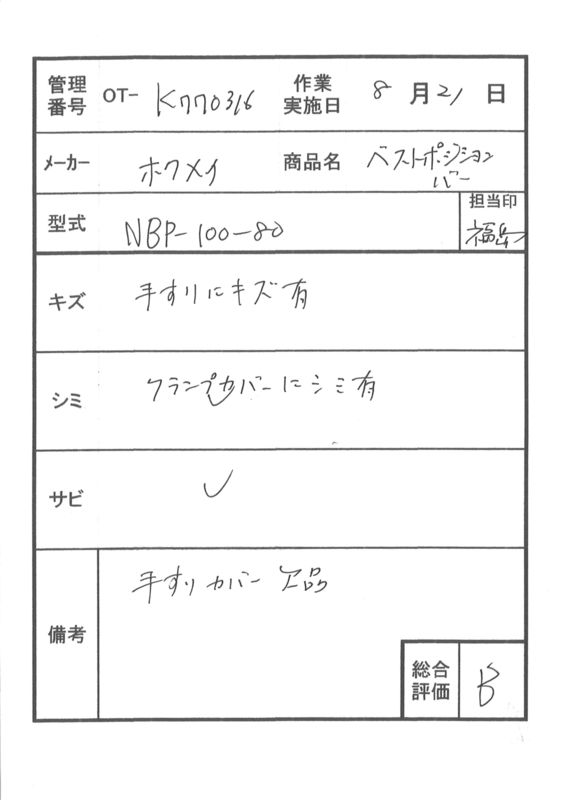 管理番号 OT- K770316 作業実施日 8月21日
メーカー ホクメイ 商品名 ベストポジションバー
型式 NBP-100-80 担当印
キズ 手すりにキズ有
シミ クランプカバーにシミ有
サビ ✓
備考 手すりカバー欠品
総合評価 B